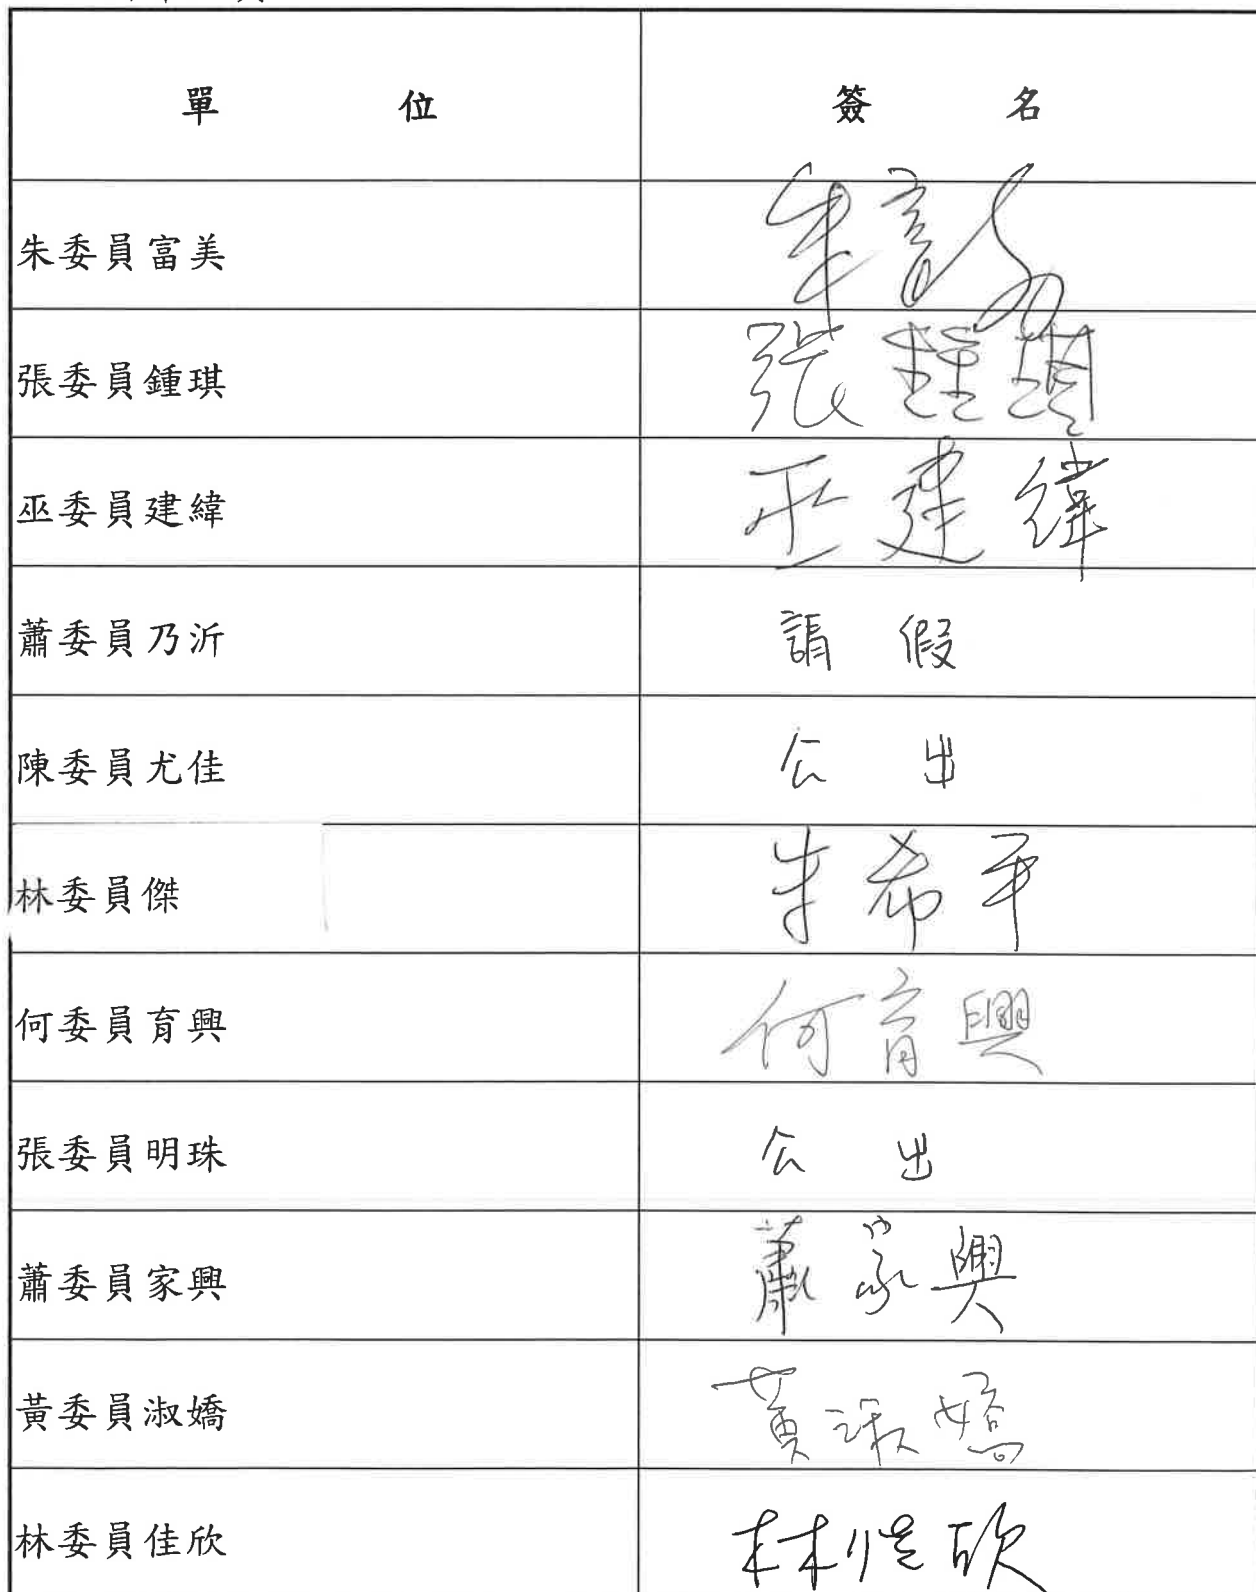 單 位 簽 名
朱委員富美 朱富美
張委員鍾琪 張鍾琪
巫委員建緯 巫建緯
蕭委員乃沂 請假
陳委員尤佳 公出
林委員傑 朱希平
何委員育興 何育興
張委員明珠 公出
蕭委員家興 蕭家興
黃委員淑嬌 黃淑嬌
林委員佳欣 林佳欣